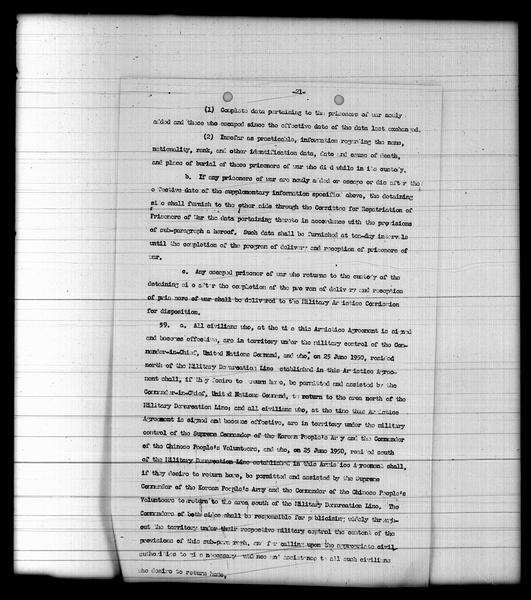 -21-
(1) Complete data pertaining to the prisoners of war newly
added and those who escaped since the effective date of the data last exchanged.
(2) Insofar as practicable, information regarding the name,
nationality, rank, and other identification data, date and cause of death,
and place of burial of those prisoners of war who died while in its custody.
b. If any prisoners of war are newly added or escape or die after the
effective date of the supplementary information specified above, the detaining
side shall furnish to the other side through the Committee for Repatriation of
Prisoners of War the data pertaining thereto in accordance with the provisions
of sub-paragraph a hereof. Such data shall be furnished at ten-day intervals
until the completion of the program of delivery and reception of prisoners of
war.
c. Any escaped prisoner of war who returns to the custody of the
detaining side after the completion of the program of delivery and reception
of prisoners of war shall be delivered to the Military Armistice Commission
for disposition.
59. a. All civilians who, at the time this Armistice Agreement is signed
and become effective, are in territory under the military control of the Com-
mander-in-Chief, United Nations Command, and who, on 25 June 1950, resided
north of the Military Demarcation Line established in this Armistice Agree-
ment shall, if they desire to return home, be permitted and assisted by the
Commander-in-Chief, United Nations Command, to return to the area north of the
Military Demarcation Line; and all civilians who, at the time this Armistice
Agreement is signed and become effective, are in territory under the military
control of the Supreme Commander of the Korean People's Army and the Commander
of the Chinese People's Volunteers, and who, on 25 June 1950, resided south
of the Military Demarcation Line established in this Armistice Agreement shall,
if they desire to return home, be permitted and assisted by the Supreme
Commander of the Korean People's Army and the Commander of the Chinese People's
Volunteers to return to the area south of the Military Demarcation Line. The
Commanders of both sides shall be responsible for publicizing widely through-
out the territory under their respective military control the content of the
provisions of this sub-paragraph, and for calling upon the appropriate civil
authorities to give necessary guidance and assistance to all such civilians
who desire to return home.